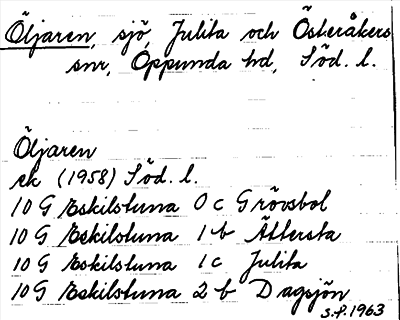 Öljaren, sjö, Julita och Österåkers
snr, Oppunda hd, Söd. l.
Öljaren
ek (1958) Söd. l.
10 G Eskilstuna 0 c Grövsbol
10 G Eskilstuna 1 b Ättersta
10 G Eskilstuna 1 c Julita
10 G Eskilstuna 2 b Dagsjön
S.P. 1963